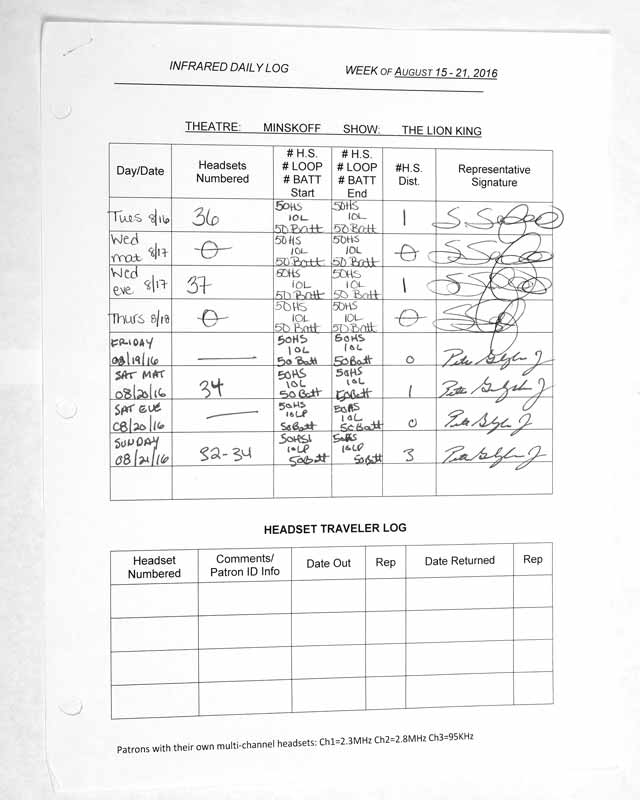 INFRARED DAILY LOG WEEK OF AUGUST 15 - 21, 2016
THEATRE: MINSKOFF SHOW: THE LION KING
Day/Date
Headsets
Numbered
# H.S.
# LOOP
# BATT
Start
# H.S.
# LOOP
# BATT
End
#H.S.
Dist.
Representative
Signature
Tues 8/16 36
50HS
10L
50 Batt
50HS
10L
50 Batt
1
Wed
mat 8/17 0
50HS
10L
50 Batt
50HS
10L
50 Batt
0
Wed
eve 8/17 37
50HS
10L
50 Batt
50HS
10L
50 Batt
1
Thurs 8/18 0
50HS
10L
50 Batt
50HS
10L
50 Batt
0
FRIDAY
08/19/16
50HS
10L
50 Batt
50HS
10L
50 Batt
0
SAT MAT
08/20/16 34
50HS
10L
50 Batt
50HS
10L
50Batt
1
SAT EVE
08/20/16
50HS
10LP
50Batt
50HS
10L
50 Batt
0
SUNDAY
08/21/16 32-34
50HS
10LP
50Batt
50HS
10LP
50Batt
3
HEADSET TRAVELER LOG
Headset
Numbered
Comments/
Patron ID Info
Date Out
Rep
Date Returned
Rep
Patrons with their own multi-channel headsets: Ch1=2.3MHz Ch2=2.8MHz Ch3=95KHz